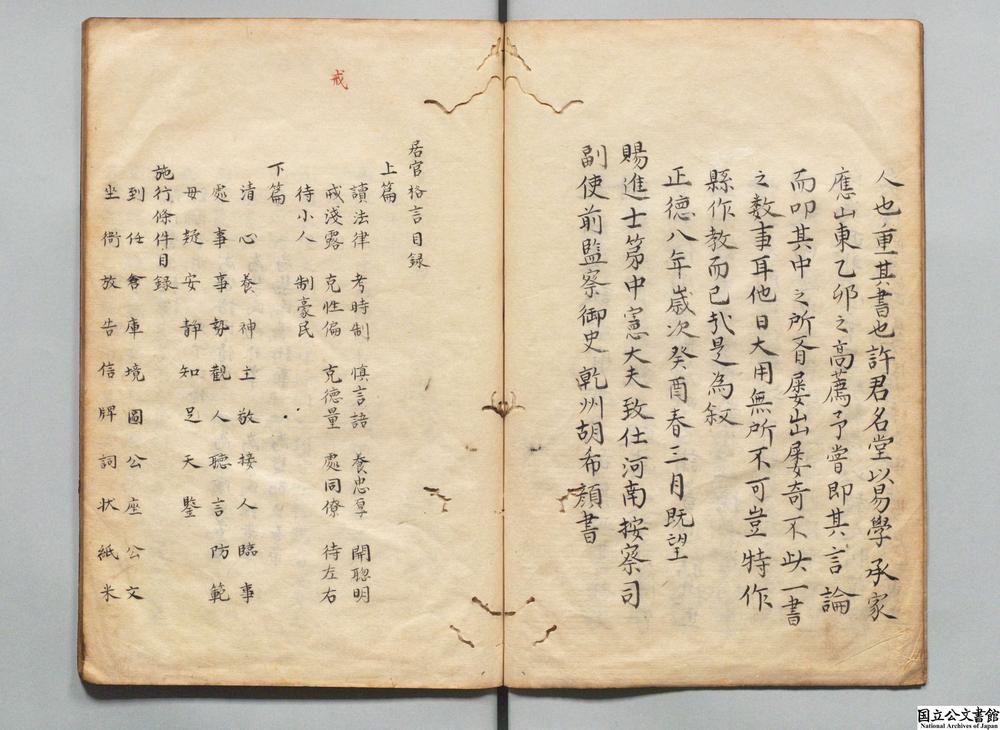 人也重其書也許君名堂以易學承家
應山東乙卯之高薦予嘗即其言論
而叩其中之所有屡出屡奇不此一書
之数事耳他日大用無所不可豈特作
縣作教而已㢤是為叙
正德八年歲次癸酉春三月既望
賜進士第中憲大夫致仕河南按察司
副使前監察御史乾州胡希顔書
戒
居官格言目録
上篇
讀法律 考時制 慎言語 養忠厚 開聰明
戒淺露 克性偏 克德量 處同僚 待左右
待小人 制豪民
下篇
清心 養神 主敬 接人 臨事
處事 事勢 觀人 聽言 防範
毋疑 安靜 知足 天鑒
施行條件目録
到任 倉庫 境圖 公座 公文
坐衙 放告 信牌 詞状 紙米
国立公文書館
National Archives of Japan